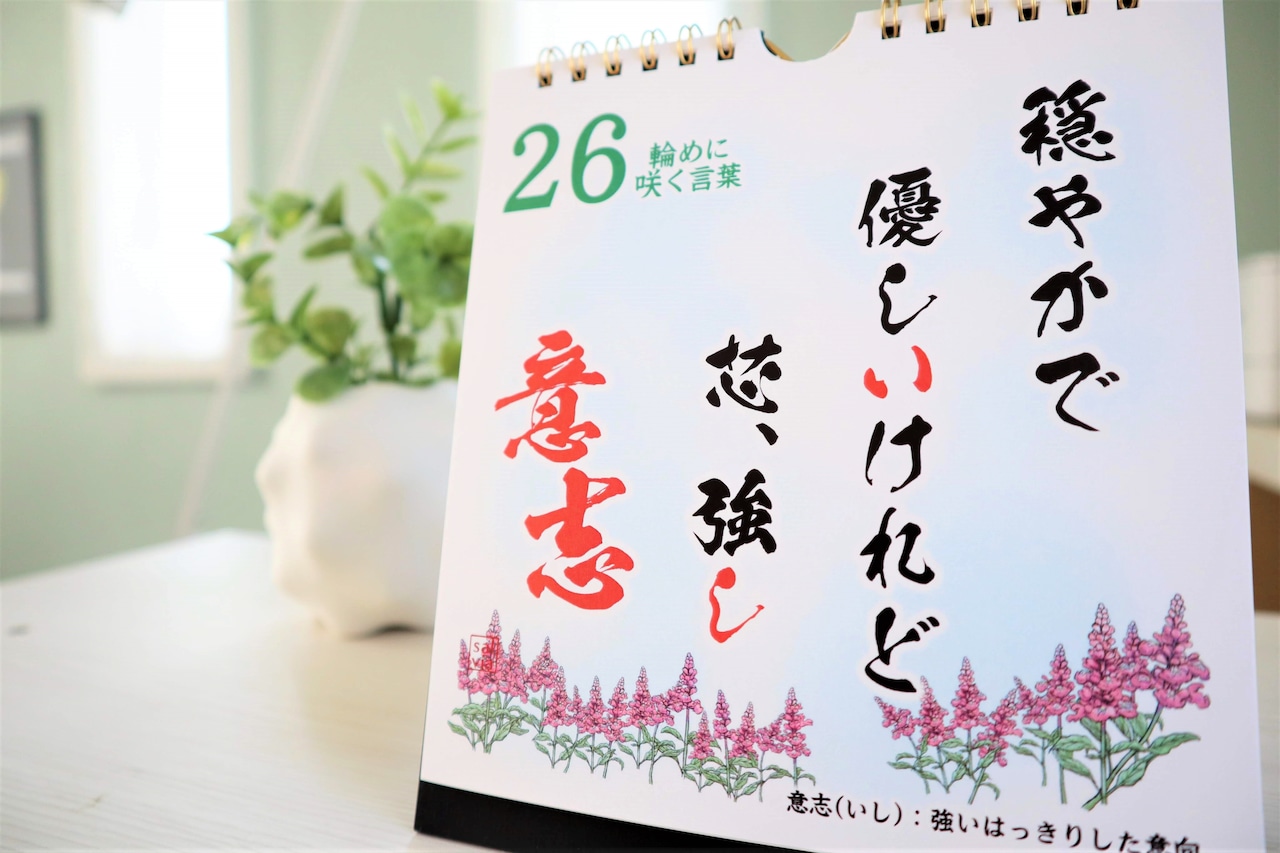 26
輪めに
咲く言葉
穏やかで
優しいけれど
芯、強し
意志
意志(いし)：強いはっきりした意向